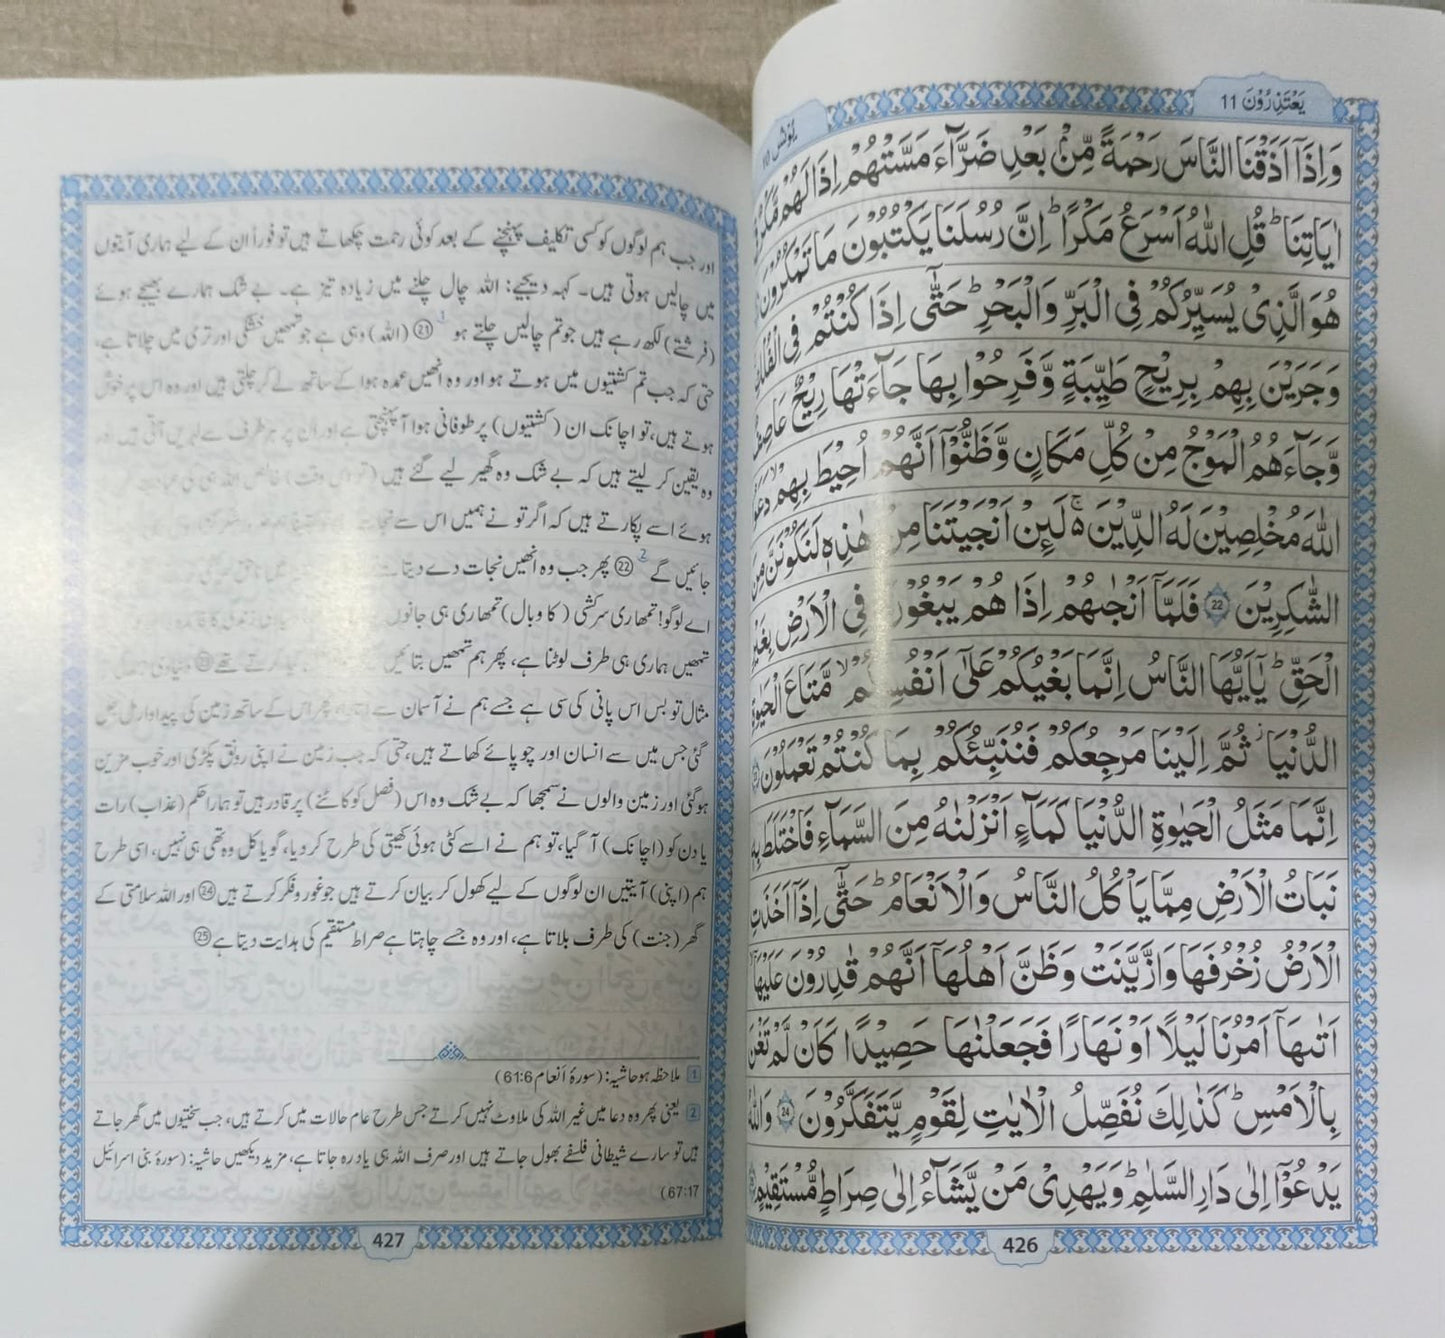 يَعْتَذِرُوْنَ 11
يُوْنُس 10
وَاِذَآ اَذَقْنَا النَّاسَ رَحْمَةً مِّنْۢ بَعْدِ ضَرَّآءَ مَسَّتْهُمْ اِذَا لَهُمْ مَّكْرٌ
اٰيَاتِنَا ؕ قُلِ اللّٰهُ اَسْرَعُ مَكْرًا ؕ اِنَّ رُسُلَنَا يَكْتُبُوْنَ مَا تَمْكُرُوْنَ
هُوَ الَّذِيْ يُسَيِّرُكُمْ فِى الْبَرِّ وَالْبَحْرِ ؕ حَتّٰٓى اِذَا كُنْتُمْ فِى الْفُلْكِ
وَجَرَيْنَ بِهِمْ بِرِيْحٍ طَيِّبَةٍ وَّفَرِحُوْا بِهَا جَآءَتْهَا رِيْحٌ عَاصِفٌ
وَّجَآءَهُمُ الْمَوْجُ مِنْ كُلِّ مَكَانٍ وَّظَنُّوْٓا اَنَّهُمْ اُحِيْطَ بِهِمْ ۙ دَعَوُا
اللّٰهَ مُخْلِصِيْنَ لَهُ الدِّيْنَ ۚ لَئِنْ اَنْجَيْتَنَا مِنْ هٰذِهٖ لَنَكُوْنَنَّ مِنَ
الشّٰكِرِيْنَ 22 فَلَمَّآ اَنْجٰىهُمْ اِذَا هُمْ يَبْغُوْنَ فِى الْاَرْضِ بِغَيْرِ
الْحَقِّ ؕ يٰٓاَيُّهَا النَّاسُ اِنَّمَا بَغْيُكُمْ عَلٰٓى اَنْفُسِكُمْ ۙ مَّتَاعَ الْحَيٰوةِ
الدُّنْيَا ؗ ثُمَّ اِلَيْنَا مَرْجِعُكُمْ فَنُنَبِّئُكُمْ بِمَا كُنْتُمْ تَعْمَلُوْنَ
اِنَّمَا مَثَلُ الْحَيٰوةِ الدُّنْيَا كَمَآءٍ اَنْزَلْنٰهُ مِنَ السَّمَآءِ فَاخْتَلَطَ بِهٖ
نَبَاتُ الْاَرْضِ مِمَّا يَاْكُلُ النَّاسُ وَالْاَنْعَامُ ؕ حَتّٰٓى اِذَآ اَخَذَتِ
الْاَرْضُ زُخْرُفَهَا وَازَّيَّنَتْ وَظَنَّ اَهْلُهَآ اَنَّهُمْ قٰدِرُوْنَ عَلَيْهَآ
اَتٰىهَآ اَمْرُنَا لَيْلًا اَوْ نَهَارًا فَجَعَلْنٰهَا حَصِيْدًا كَاَنْ لَّمْ تَغْنَ
بِالْاَمْسِ ؕ كَذٰلِكَ نُفَصِّلُ الْاٰيٰتِ لِقَوْمٍ يَّتَفَكَّرُوْنَ 24 وَاللّٰهُ
يَدْعُوْٓا اِلٰى دَارِ السَّلٰمِ ؕ وَيَهْدِيْ مَنْ يَّشَآءُ اِلٰى صِرَاطٍ مُّسْتَقِيْمٍ
426
اور جب ہم لوگوں کو کسی تکلیف پہنچنے کے بعد کوئی رحمت چکھاتے ہیں تو فوراً ان کے لیے ہماری آیتوں
میں چالیں ہوتی ہیں۔ کہہ دیجیے: اللہ چال چلنے میں زیادہ تیز ہے۔ بے شک ہمارے بھیجے ہوئے
(فرشتے) لکھ رہے ہیں جو تم چالیں چلتے ہو 1 ㉑ (اللہ) وہی ہے جو تمھیں خشکی اور تری میں چلاتا ہے،
حتی کہ جب تم کشتیوں میں ہوتے ہو اور وہ انھیں عمدہ ہوا کے ساتھ لے کر چلتی ہیں اور وہ اس پر خوش
ہوتے ہیں، تو اچانک ان (کشتیوں) پر طوفانی ہوا آ پہنچتی ہے اور ان پر ہر طرف سے لہریں آتی ہیں اور
وہ یقین کر لیتے ہیں کہ بے شک وہ گھیر لیے گئے ہیں (تو اس وقت) خالص اللہ ہی کی
ہوئے اسے پکارتے ہیں کہ اگر تو نے ہمیں اس سے نجات
جائیں گے 2 ㉒ پھر جب وہ انھیں نجات دے دیتا
اے لوگو! تمھاری سرکشی (کا وبال) تمھاری ہی جانوں
تمھیں ہماری ہی طرف لوٹنا ہے، پھر ہم تمھیں بتائیں کرتے تھے ㉓ دنیاوی
مثال تو بس اس پانی کی سی ہے جسے ہم نے آسمان سے اتارا، پھر اس کے ساتھ زمین کی پیداوار مل جل
گئی جس میں سے انسان اور چوپائے کھاتے ہیں، حتی کہ جب زمین نے اپنی رونق پکڑی اور خوب مزین
ہو گئی اور زمین والوں نے سمجھا کہ بے شک وہ اس (فصل کو کاٹنے) پر قادر ہیں تو ہمارا حکم (عذاب) رات
یا دن کو (اچانک) آ گیا، تو ہم نے اسے کٹی ہوئی کھیتی کی طرح کر دیا، گویا کل وہ تھی ہی نہیں، اسی طرح
ہم (اپنی) آیتیں ان لوگوں کے لیے کھول کر بیان کرتے ہیں جو غور و فکر کرتے ہیں ㉔ اور اللہ سلامتی کے
گھر (جنت) کی طرف بلاتا ہے، اور وہ جسے چاہتا ہے صراط مستقیم کی ہدایت دیتا ہے ㉕
1 ملاحظہ ہو حاشیہ: (سورۂ أنعام 61:6)
2 یعنی پھر وہ دعا میں غیر اللہ کی ملاوٹ نہیں کرتے جس طرح عام حالات میں کرتے ہیں، جب سختیوں میں گھر جاتے
ہیں تو سارے شیطانی فلسفے بھول جاتے ہیں اور صرف اللہ ہی یاد رہ جاتا ہے، مزید دیکھیں حاشیہ: (سورۂ بنی اسرائیل
67:17)
427